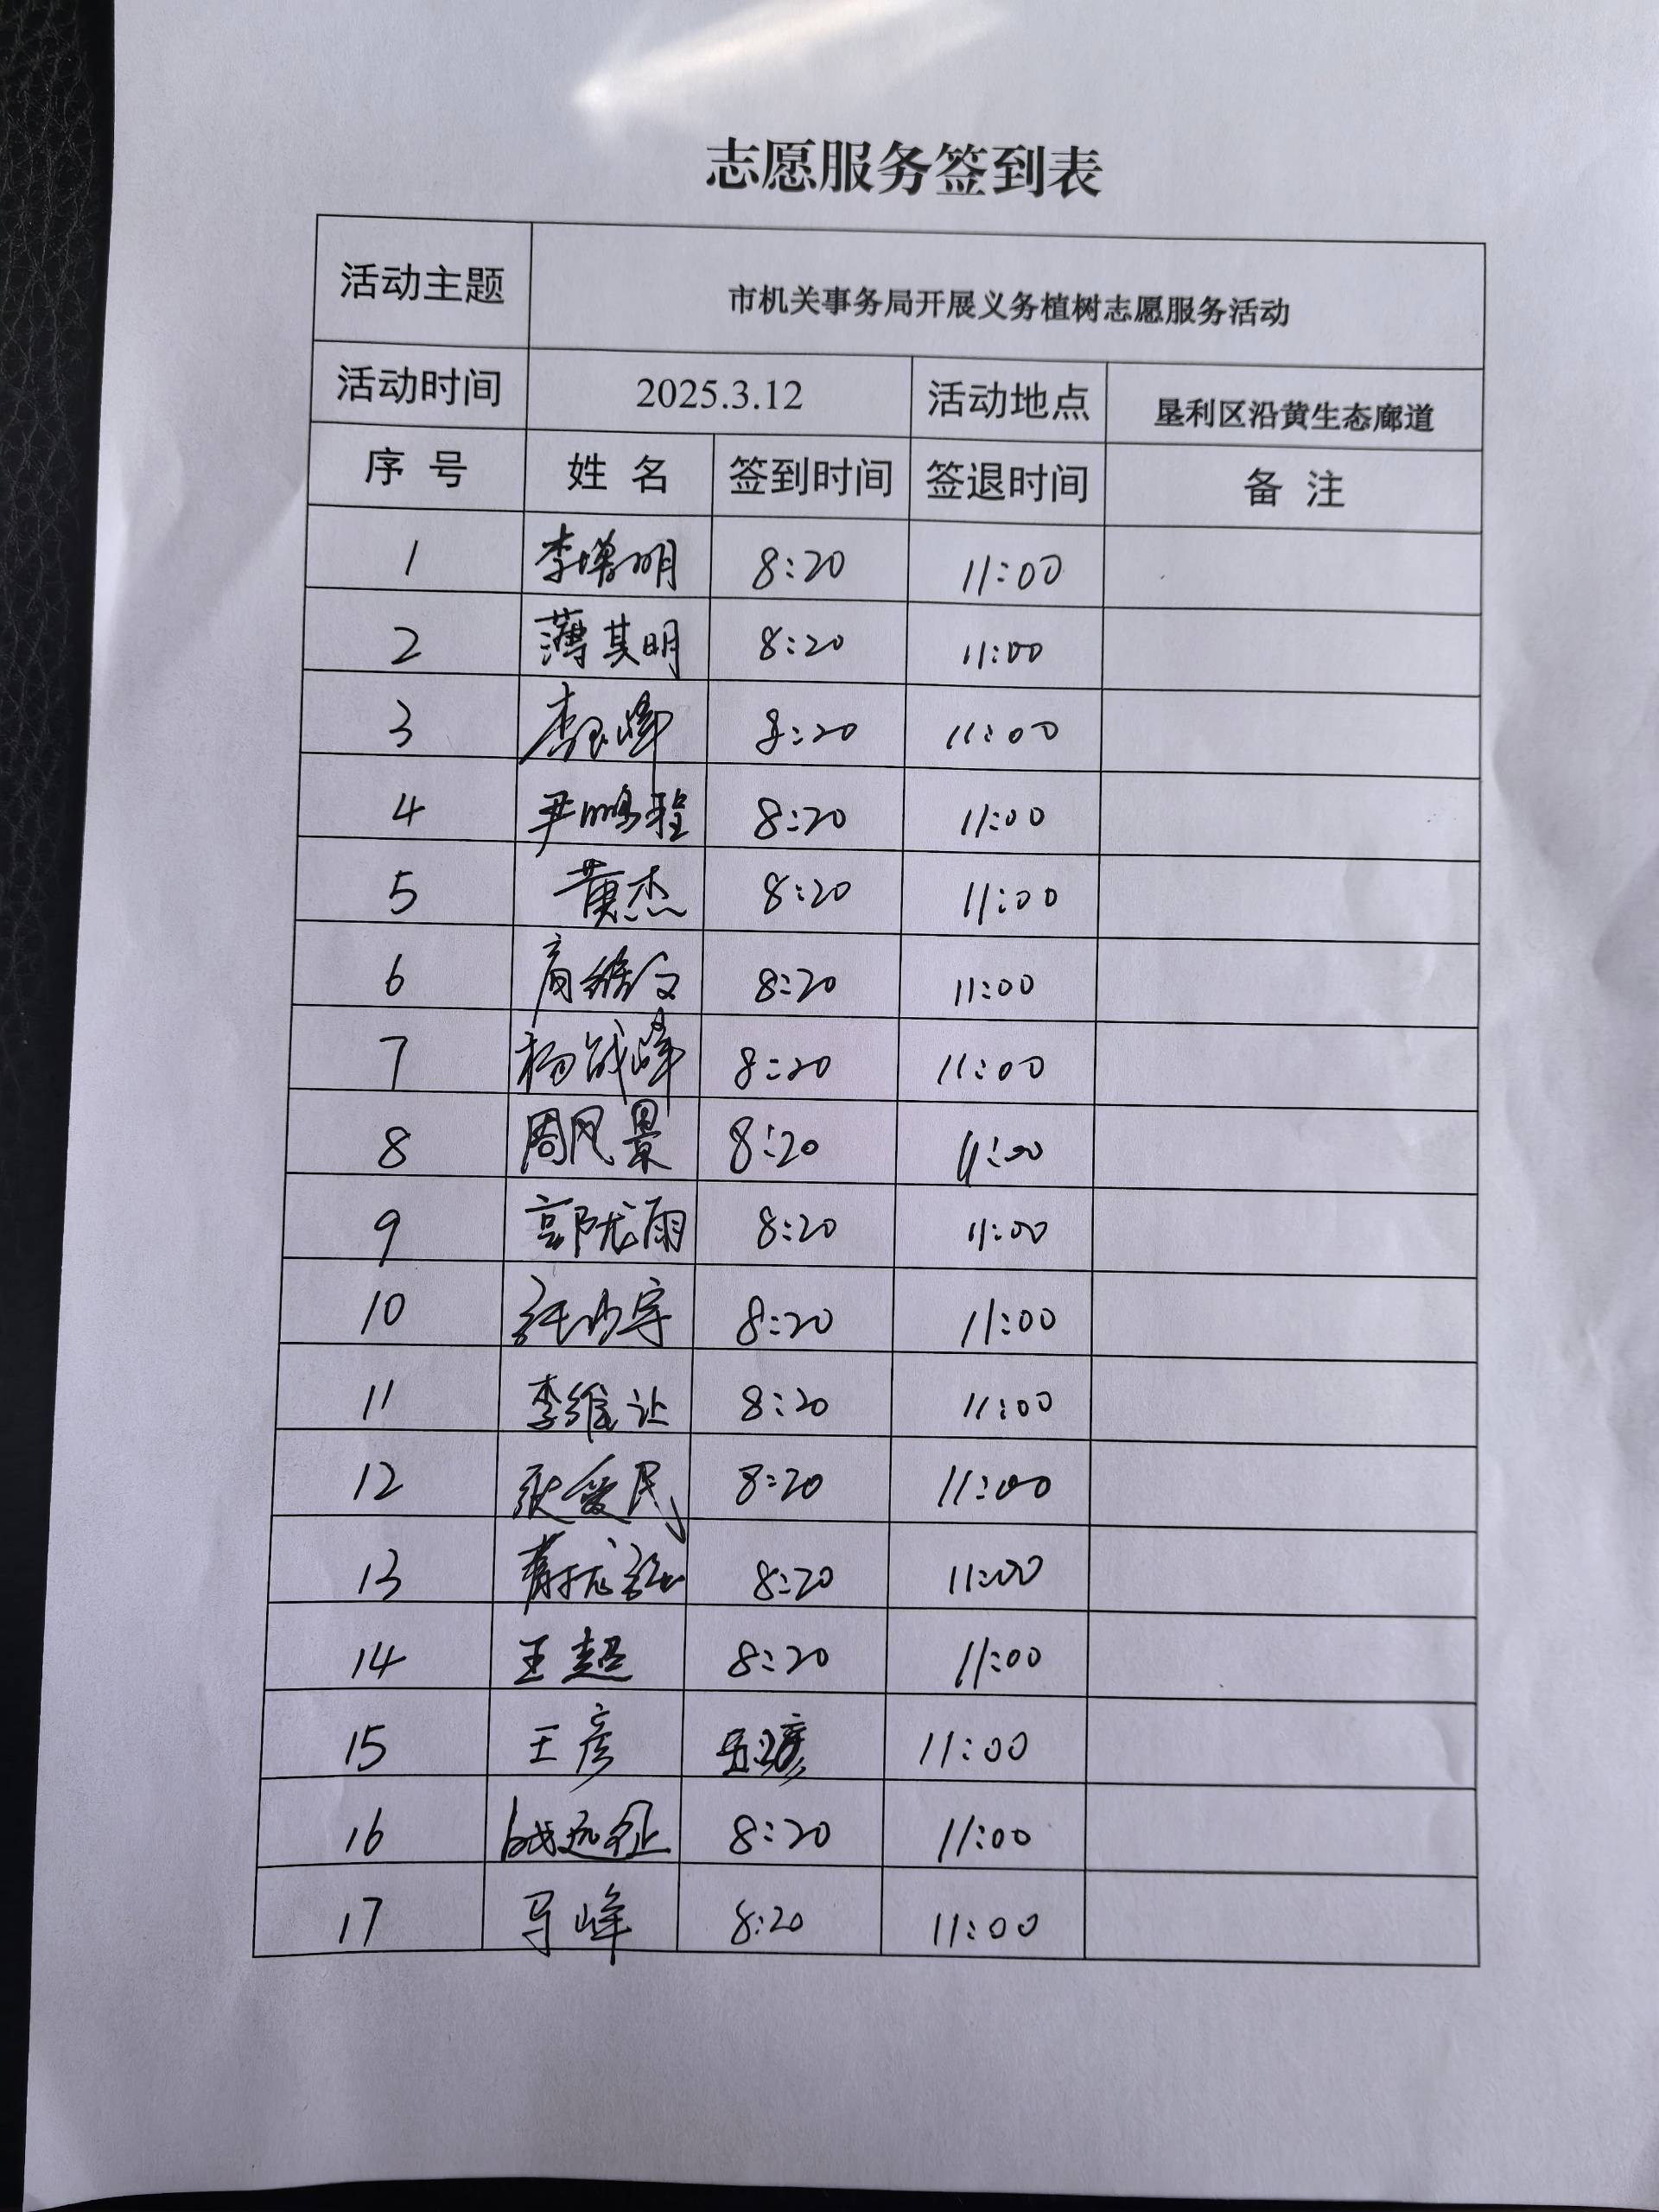 志愿服务签到表
活动主题 市机关事务局开展义务植树志愿服务活动
活动时间 2025.3.12 活动地点 垦利区沿黄生态廊道
序 号 姓 名 签到时间 签退时间 备 注
1 李增明 8:20 11:00
2 薄其明 8:20 11:00
3 李 峰 8:20 11:00
4 尹鹏程 8:20 11:00
5 黄杰 8:20 11:00
6 8:20 11:00
7 杨战峰 8:20 11:00
8 周风景 8:20 11:00
9 郭陇雨 8:20 11:00
10 8:20 11:00
11 李维让 8:20 11:00
12 耿爱民 8:20 11:00
13 8:20 11:00
14 王超 8:20 11:00
15 王彦 11:00
16 战远征 8:20 11:00
17 马峰 8:20 11:00